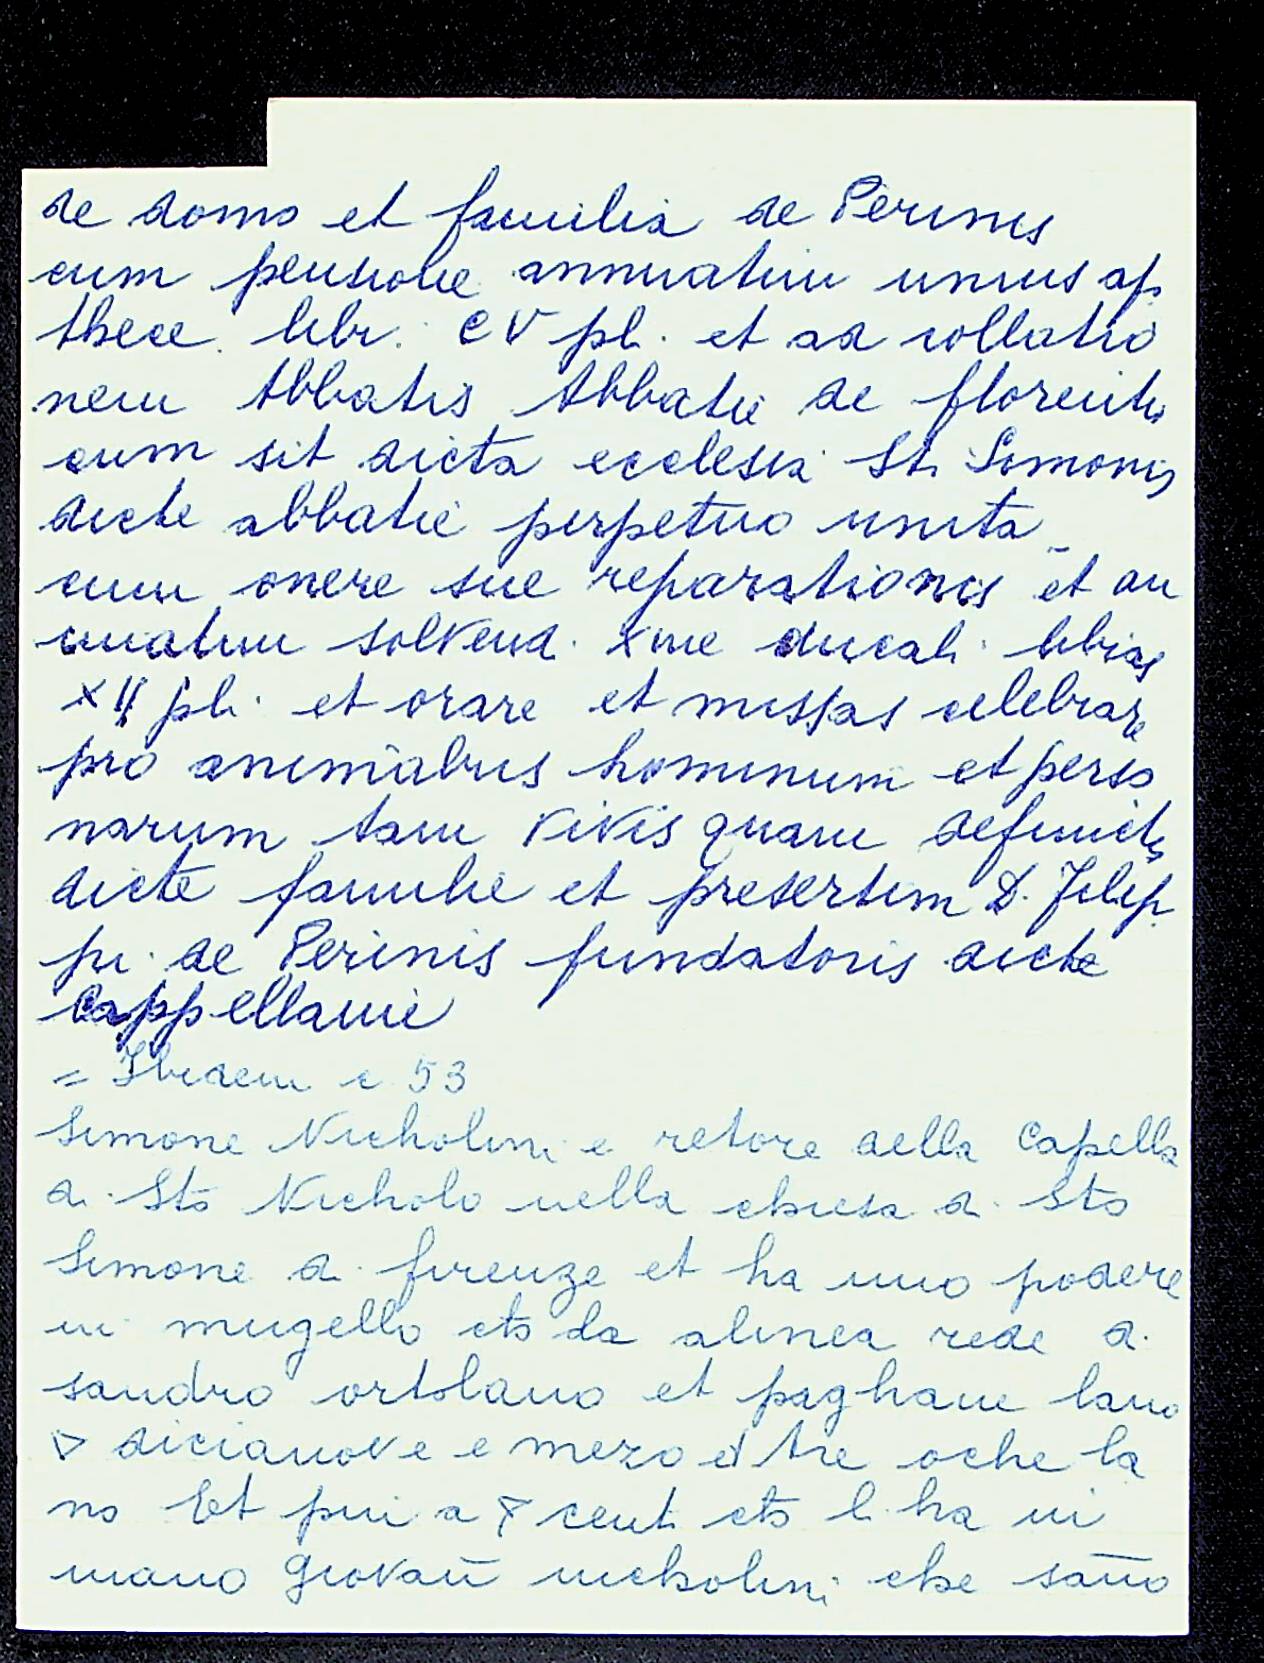 de domo et familia de Perinis
cum pensione annuatim unius ap
thece libr. CV pl. et ad collatio
nem Abbatis Abbatie de florentia
cum sit dicta ecclesia Sti Simonis
dicte abbatie perpetuo unita
cum onere sue reparationis et an
nuatim solvend. xme ducali libras
XII pli. et orare et missas celebrare
pro animabus hominum et perso
narum tam vivis quam defunctis
dicte familie et presertim D. Filip
pi de Perinis fundatoris dicte
Cappellanie
= Ibidem c 53
Simone Nicholini e retore della Capella
di Sto Nicholo nella chiesa di Sto
Simone di firenze et ha uno podere
in mugello cto da alinea rede di
sandro ortolano et paghane lano
▽ dicianove e mezo et tre oche la
no Et piu a ▽ cent. cto l. ha in
mano Giovañ nicholini che sañO